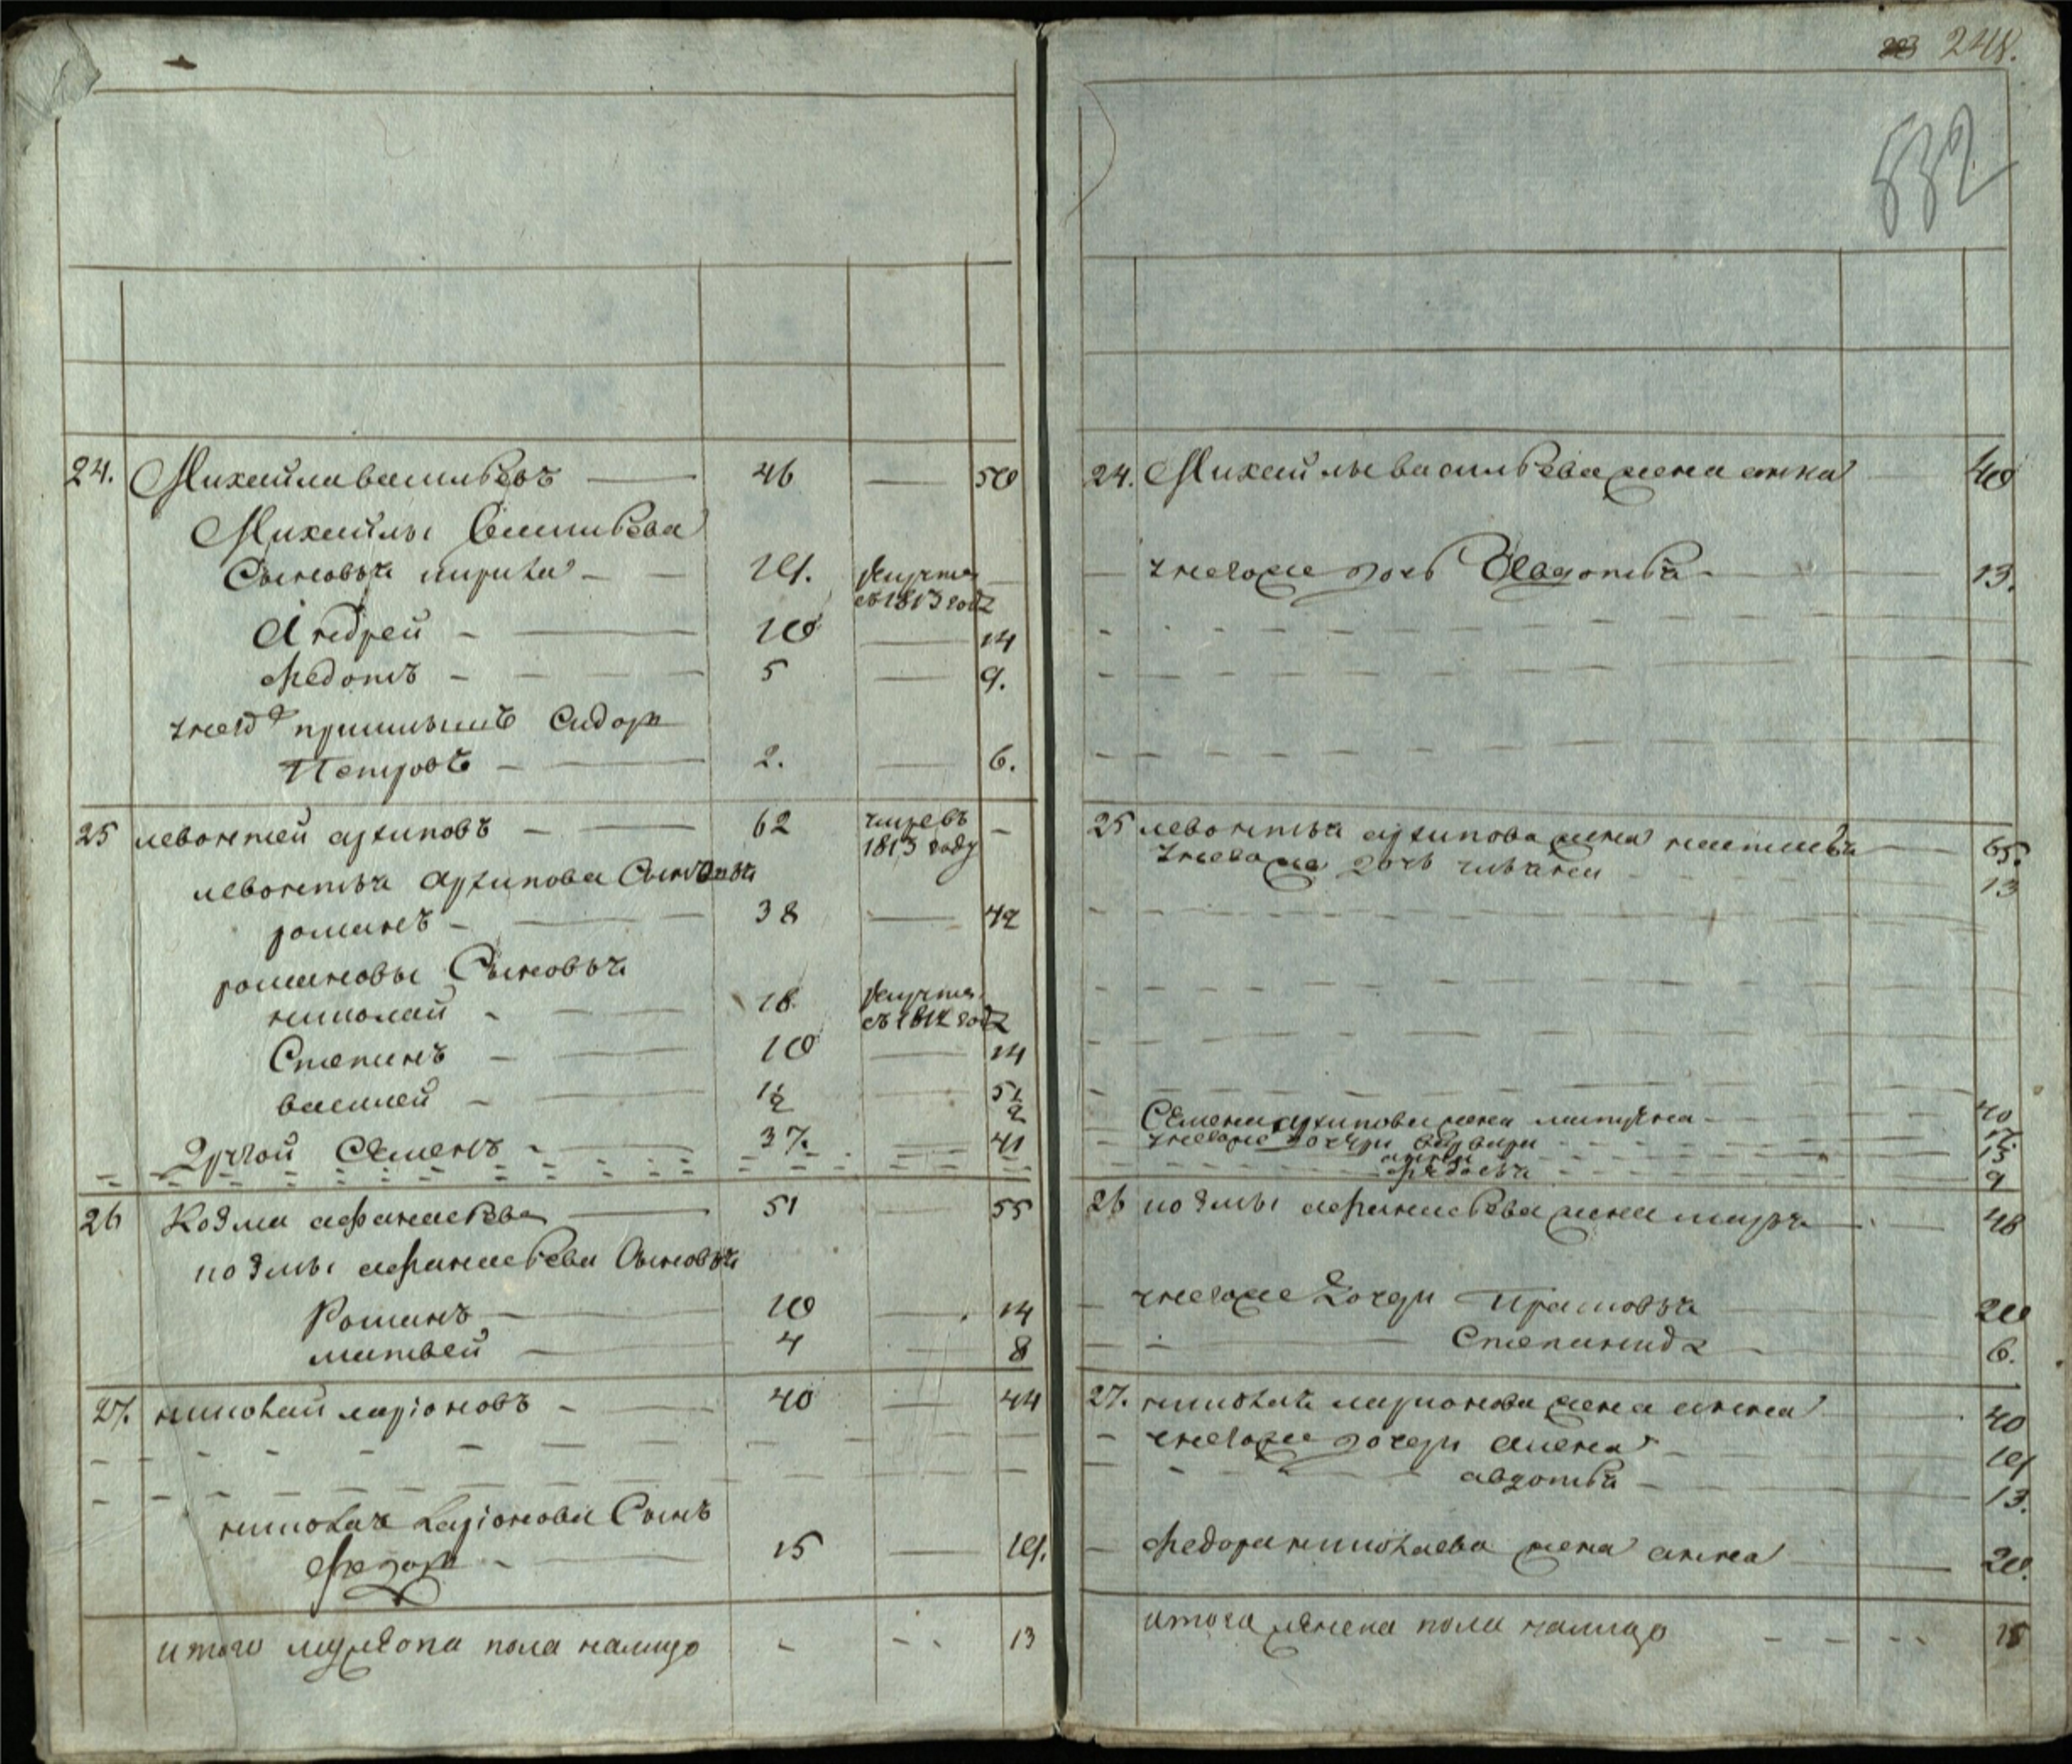 24. Михайла васильевъ — 46 — 50
Михайлы Васильева
Сыновья кирила — 19. рекрутъ
съ 1813 года
Андрей — 10 — 14
Федотъ — 5 — 9.
у него приимышъ Сидоръ
Петровъ — 2. — 6.
25 левонтей архиповъ — 62 умре въ —
1813 году
левонтья архипова Сыновья
романъ — 38 — 42
романовы Сыновья
николай — 18 рекрутъ
съ 1812 года
Степанъ — 10 — 14
василей — 1½ — 5½
Другой Семенъ — 37. — 41
26 Козма афанасьевъ — 51 — 55
козмы афанасьева Сыновья
Романъ — 10 — 14
матвей — 4 — 8
27. николай ларіоновъ — 40 — 44
николая ларіонова Сынъ
Федоръ — 15 — 19.
итого мужеска пола налицо - - - 13
248.
532
24. Михайлы васильева жена анна 40
у него же дочь Авдотья 13.
25 левонтья архипова жена настасья 65.
у него же дочь 13
Семена архипова жена матрена 40
у него же дочери варвара
13
федосья 9
26 козмы афанасьева жена марья 48
у него же дочери Прасковья 20
Степанида 6.
27. николая ларионова жена анна 40
у него же дочери алена 19
авдотья 13.
Федора николаева жена анна 20.
итого женска пола налицо 15